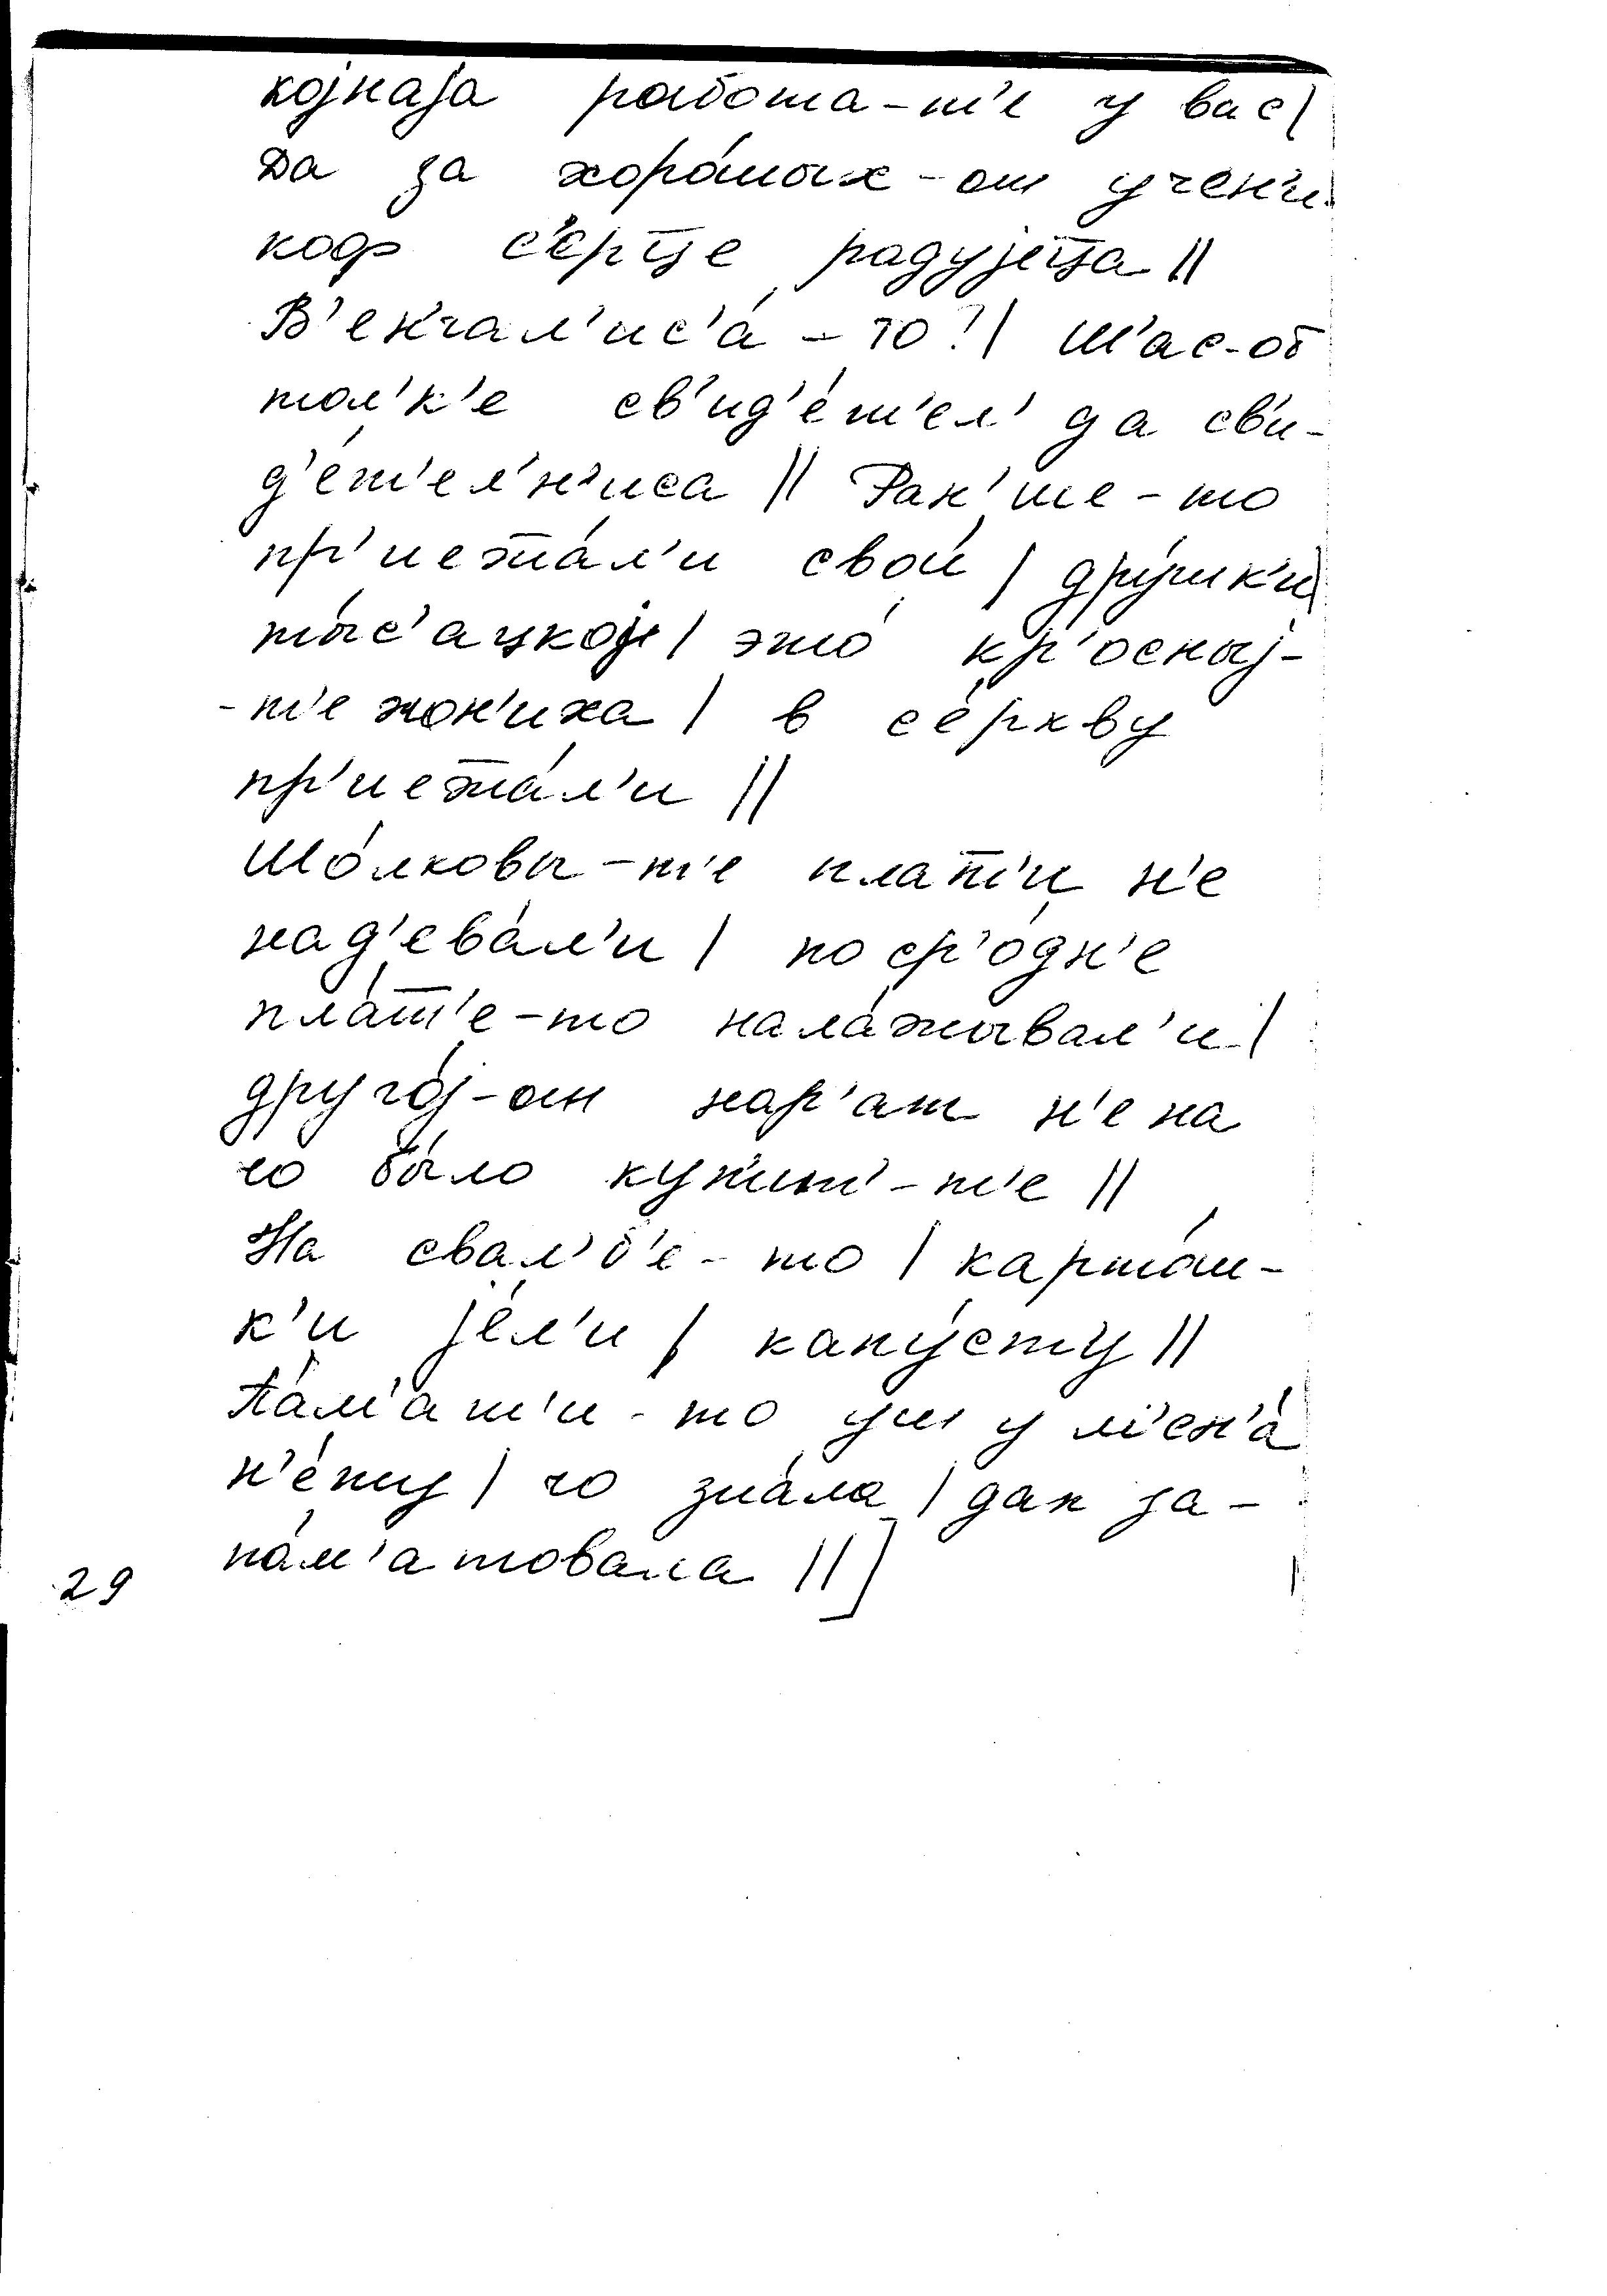 којнаја работа-т'е у вас|
Да за хоро́шых-от учен'и-
коф с'е́рц̄е радујец̄а ||
В'ен'чал'ис'а́ - то?| Ш'ас-от
тол'к'е св'ид'е́т'ел' да св'и-
д'е́т'ел'н'иса || Ран'ше-то
пр'иеж̄а́л'и свои́ | дру́шк'и|
ты́с'ацкој | это́ кр'осныј-
-т'е жон'иха | в се́ркву
пр'иеж̄а́л'и ||
Шо́лковы-т'е плат̄'и н'е
над'ева́л'и | по ср'о́дн'е
пла́т̄'е-то нала́жывал'и |
друго́ј-он нар'ат н'е на
чо бы́ло куп'ит'-т'е ||
На свал'б'е-то | карто́ш-
к'и је́л'и | капу́сту ||
Па́м'ат'и-то уш у м'ен'а́
н'е́ту | чо зна́ла | дак за-
па́м'атовала ||]
29